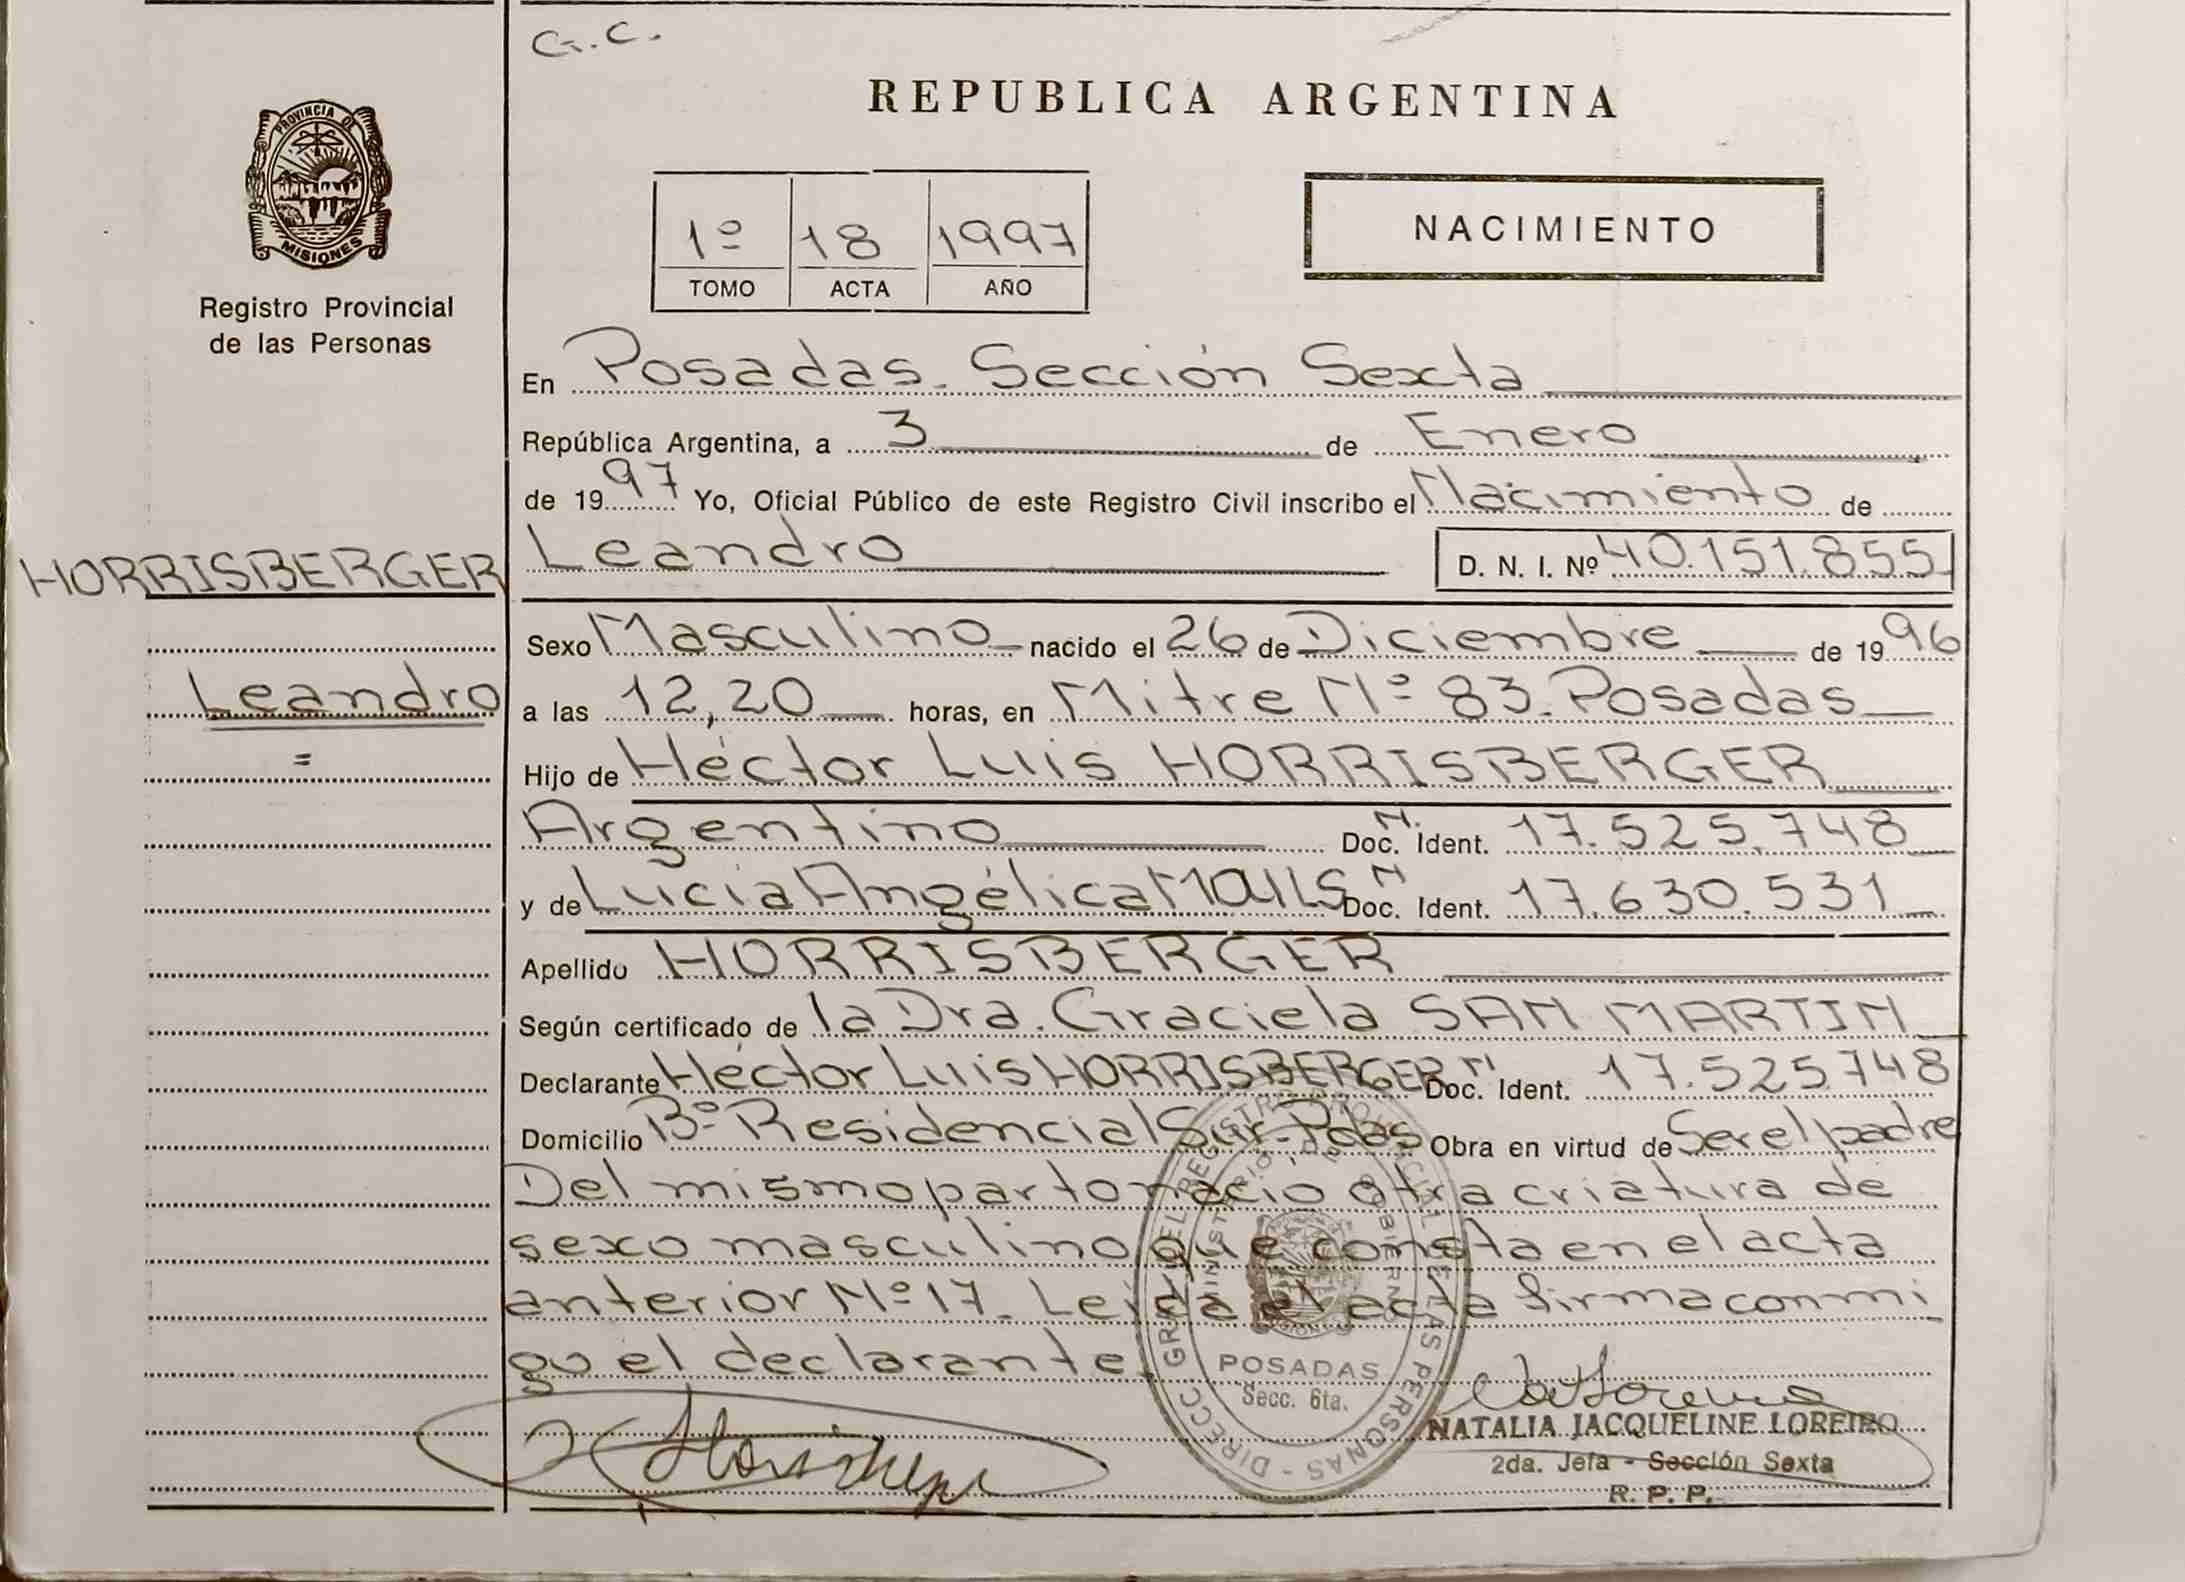 G.C.
REPUBLICA ARGENTINA
PROVINCIA DE
MISIONES
Registro Provincial
de las Personas
1º 18 1997
TOMO ACTA AÑO
NACIMIENTO
En Posadas. Sección Sexta
República Argentina, a 3 de Enero
de 1997 Yo, Oficial Público de este Registro Civil inscribo el Nacimiento de
HORRISBERGER
Leandro D. N. I. Nº 40.151.855
Sexo Masculino nacido el 26 de Diciembre de 1996
Leandro
a las 12,20 horas, en Mitre Nº 83. Posadas
=
Hijo de Héctor Luis HORRISBERGER
Argentino Doc. N. Ident. 17.525.748
y de Lucía Angélica Doc. N Ident. 17.630.531
Apellido HORRISBERGER
Según certificado de la Dra. Graciela SAN MARTIN
Declarante Héctor Luis HORRISBERGER Doc. N Ident. 17.525.748
Domicilio Bº Residencial Sur. Pdas Obra en virtud de Ser el padre
Del mismo parto nació otra criatura de
sexo masculino que consta en el acta
anterior Nº 17. Leída el acta firma conmi
go el declarante.
DIRECC. GRAL. DEL REGISTRO PROVINCIAL DE LAS PERSONAS
MINISTERIO DE GOBIERNO
MISIONES
POSADAS
Secc. 6ta.
NATALIA JACQUELINE LOREIRO
2da. Jefa - Sección Sexta
R. P. P.